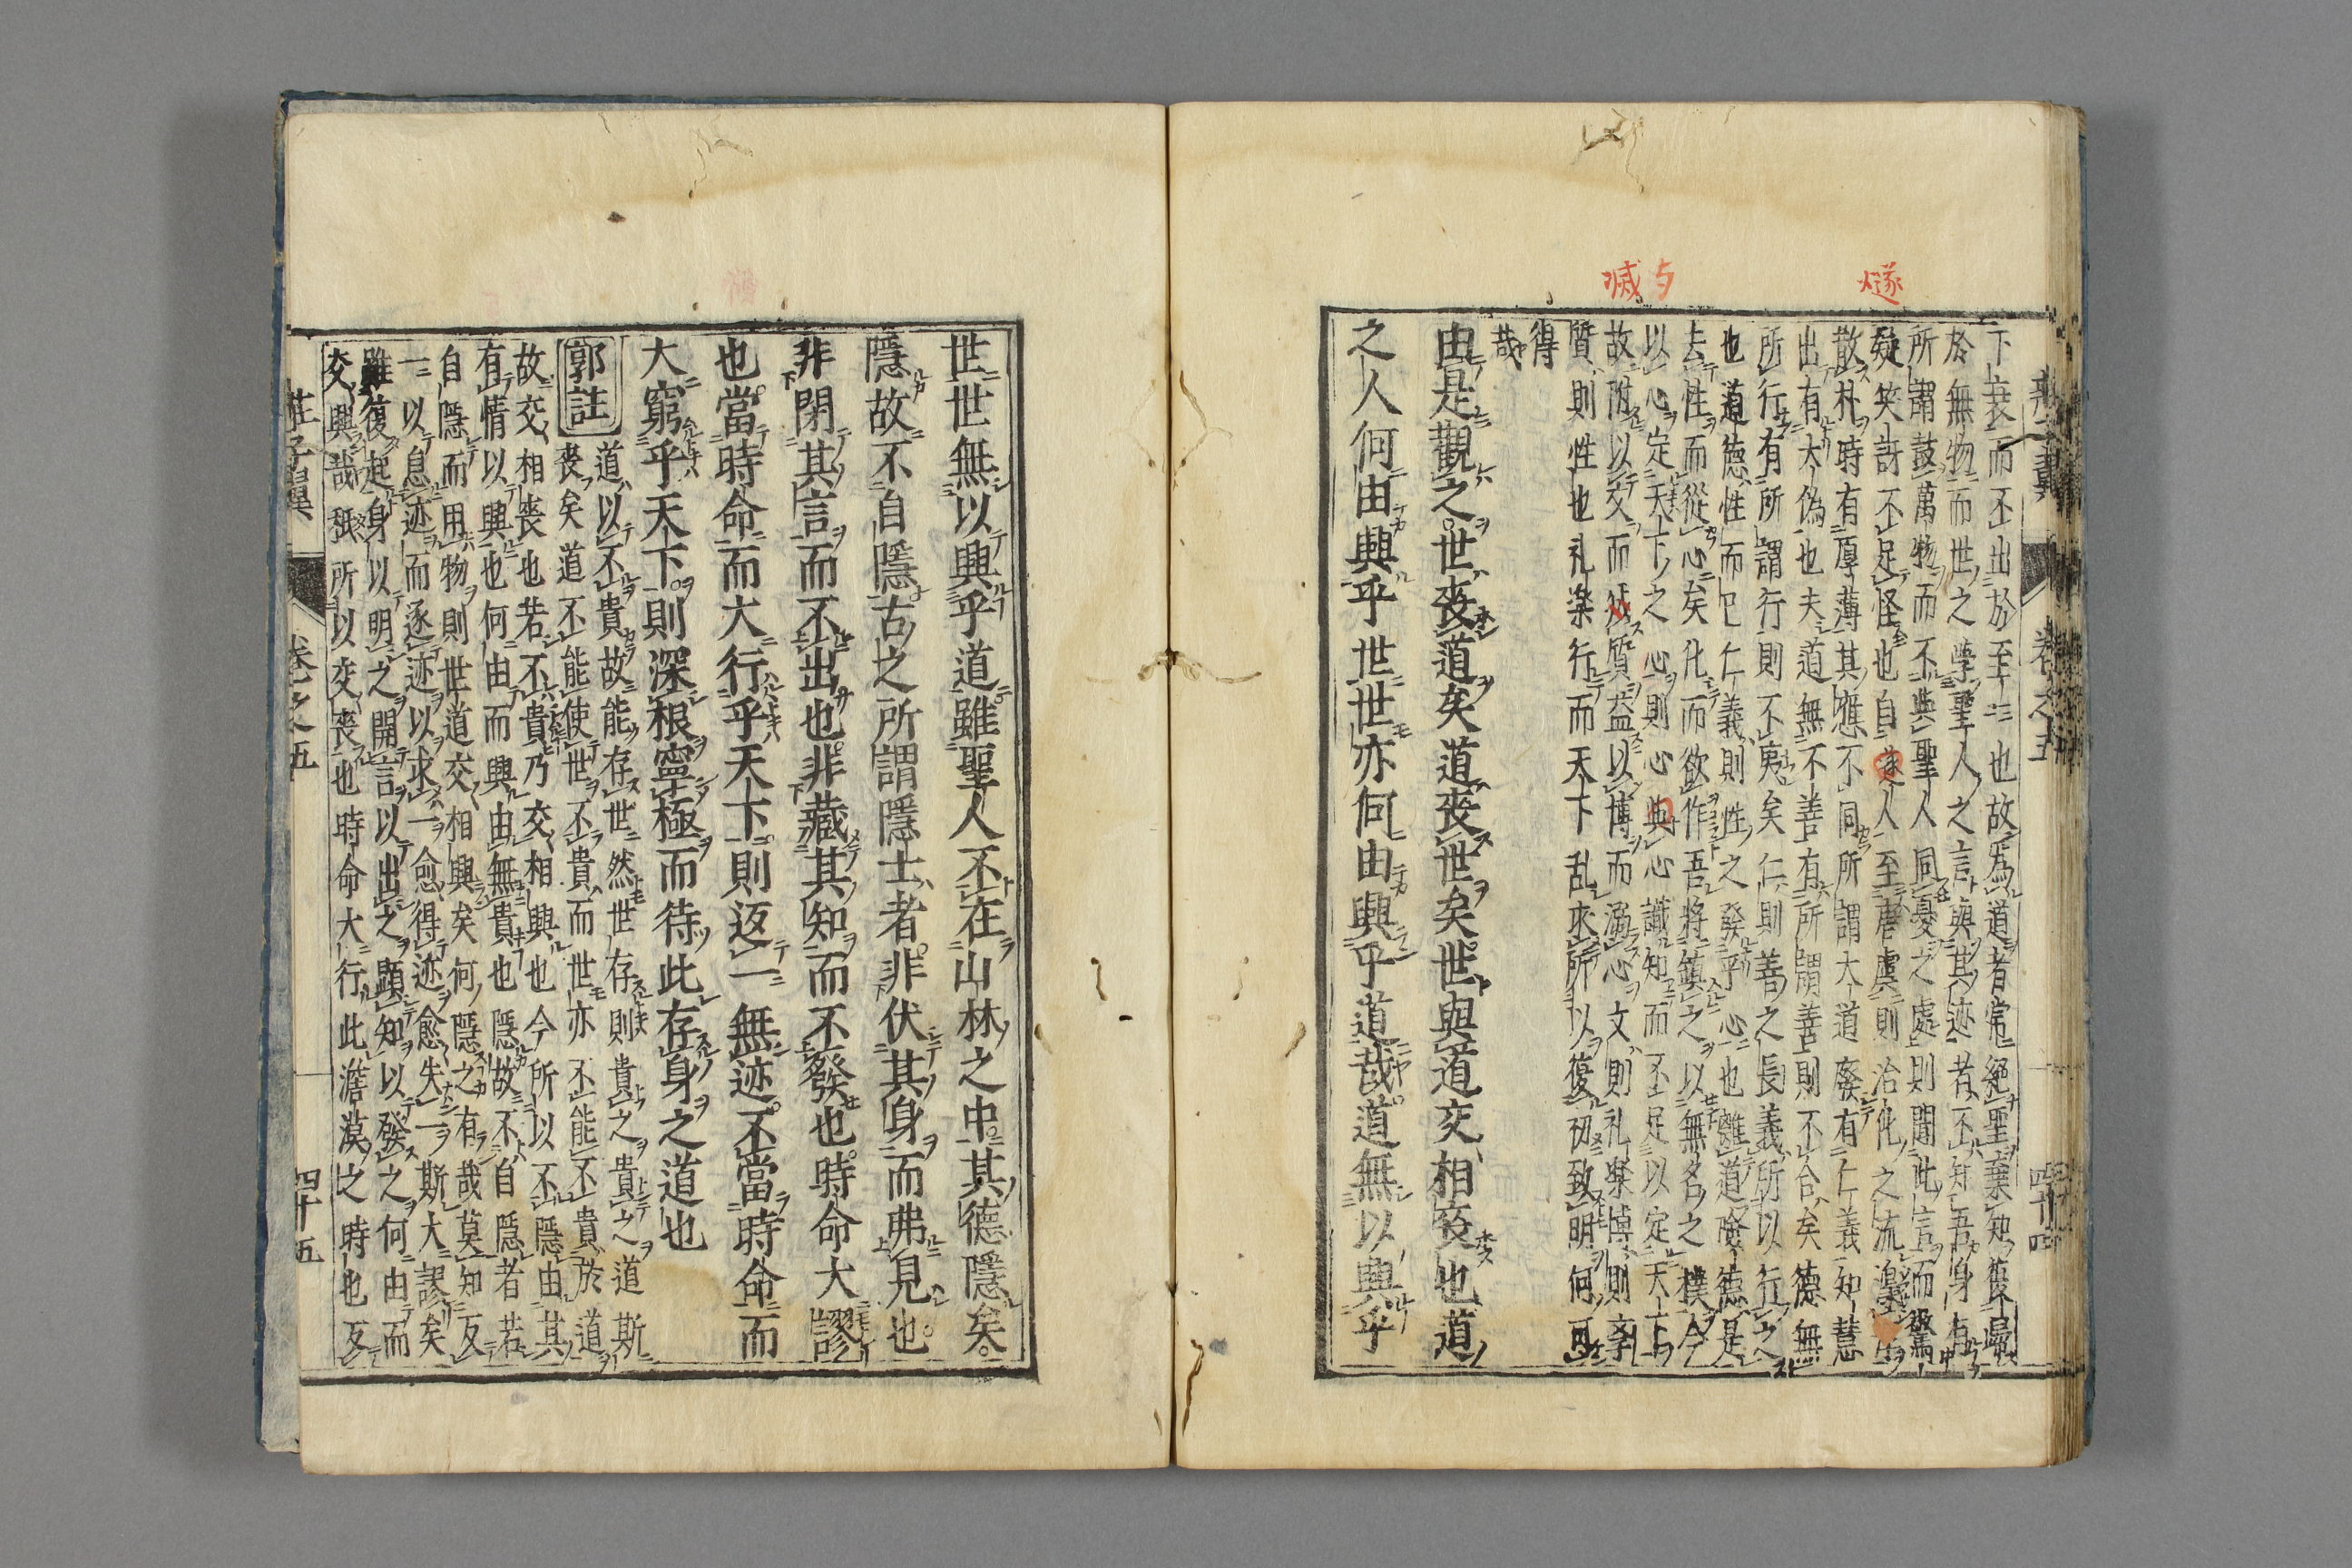 燧
与
滅
莊子翼 卷之五 四十四
下衰而不出於至一也故爲道者常絕聖棄知復歸
於無物而世之學聖人之言與其迹者不知吾身有
所謂鼓萬物而不與聖人同憂之處則聞此言而驚
疑笑訝不足怪也自遂人至唐虞則治化之流澆淳
散朴時有厚薄其應不同所謂大道廢有仁義知慧
出有大偽也夫道無不善有所謂善則不合矣德無
所行有所謂行則不夷矣仁則善之長義所以行之
也道德性而已仁義則性之發乎心也離道險德是
去性而從心矣化而欲作吾將鎮之以無名之樸今
以心定天下之心則心與心識知而不足以定天下
故附以文而質益以博而溺心文則礼楽博則孛
質則性也礼楽行而天下乱來所以復初致明何可
得
哉
由是觀之世喪道矣道喪世矣世與道交相喪也道
之人何由興乎世世亦何由興乎道哉道無以興乎
世世無以興乎道雖聖人不在山林之中其德隱矣
隱故不自隱古之所謂隱士者非伏其身而弗見也
非閉其言而不出也非藏其知而不發也時命大謬
也當時命而大行乎天下則返一無迹不當時命而
大窮乎天下則深根寧極而待此存身之道也
郭註
道以不貴故能存世然世存則貴之貴之道斯
喪矣道不能使世不貴而世亦不能不貴於道
故交相喪也若不貴乃交相興也今所以不隱由其
有情以興也何由而興由無貴也隱故不自隱者若
自隱而用物則世道交相興矣何隱之有哉莫知反
一以息迹而逐迹以求一愈得迹愈失一斯大謬矣
雖復起身以明之開言以出之顯知以發之何由而
交興哉秖所以交喪也時命大行此澹漠之時也反
莊子翼 卷之五 四十五